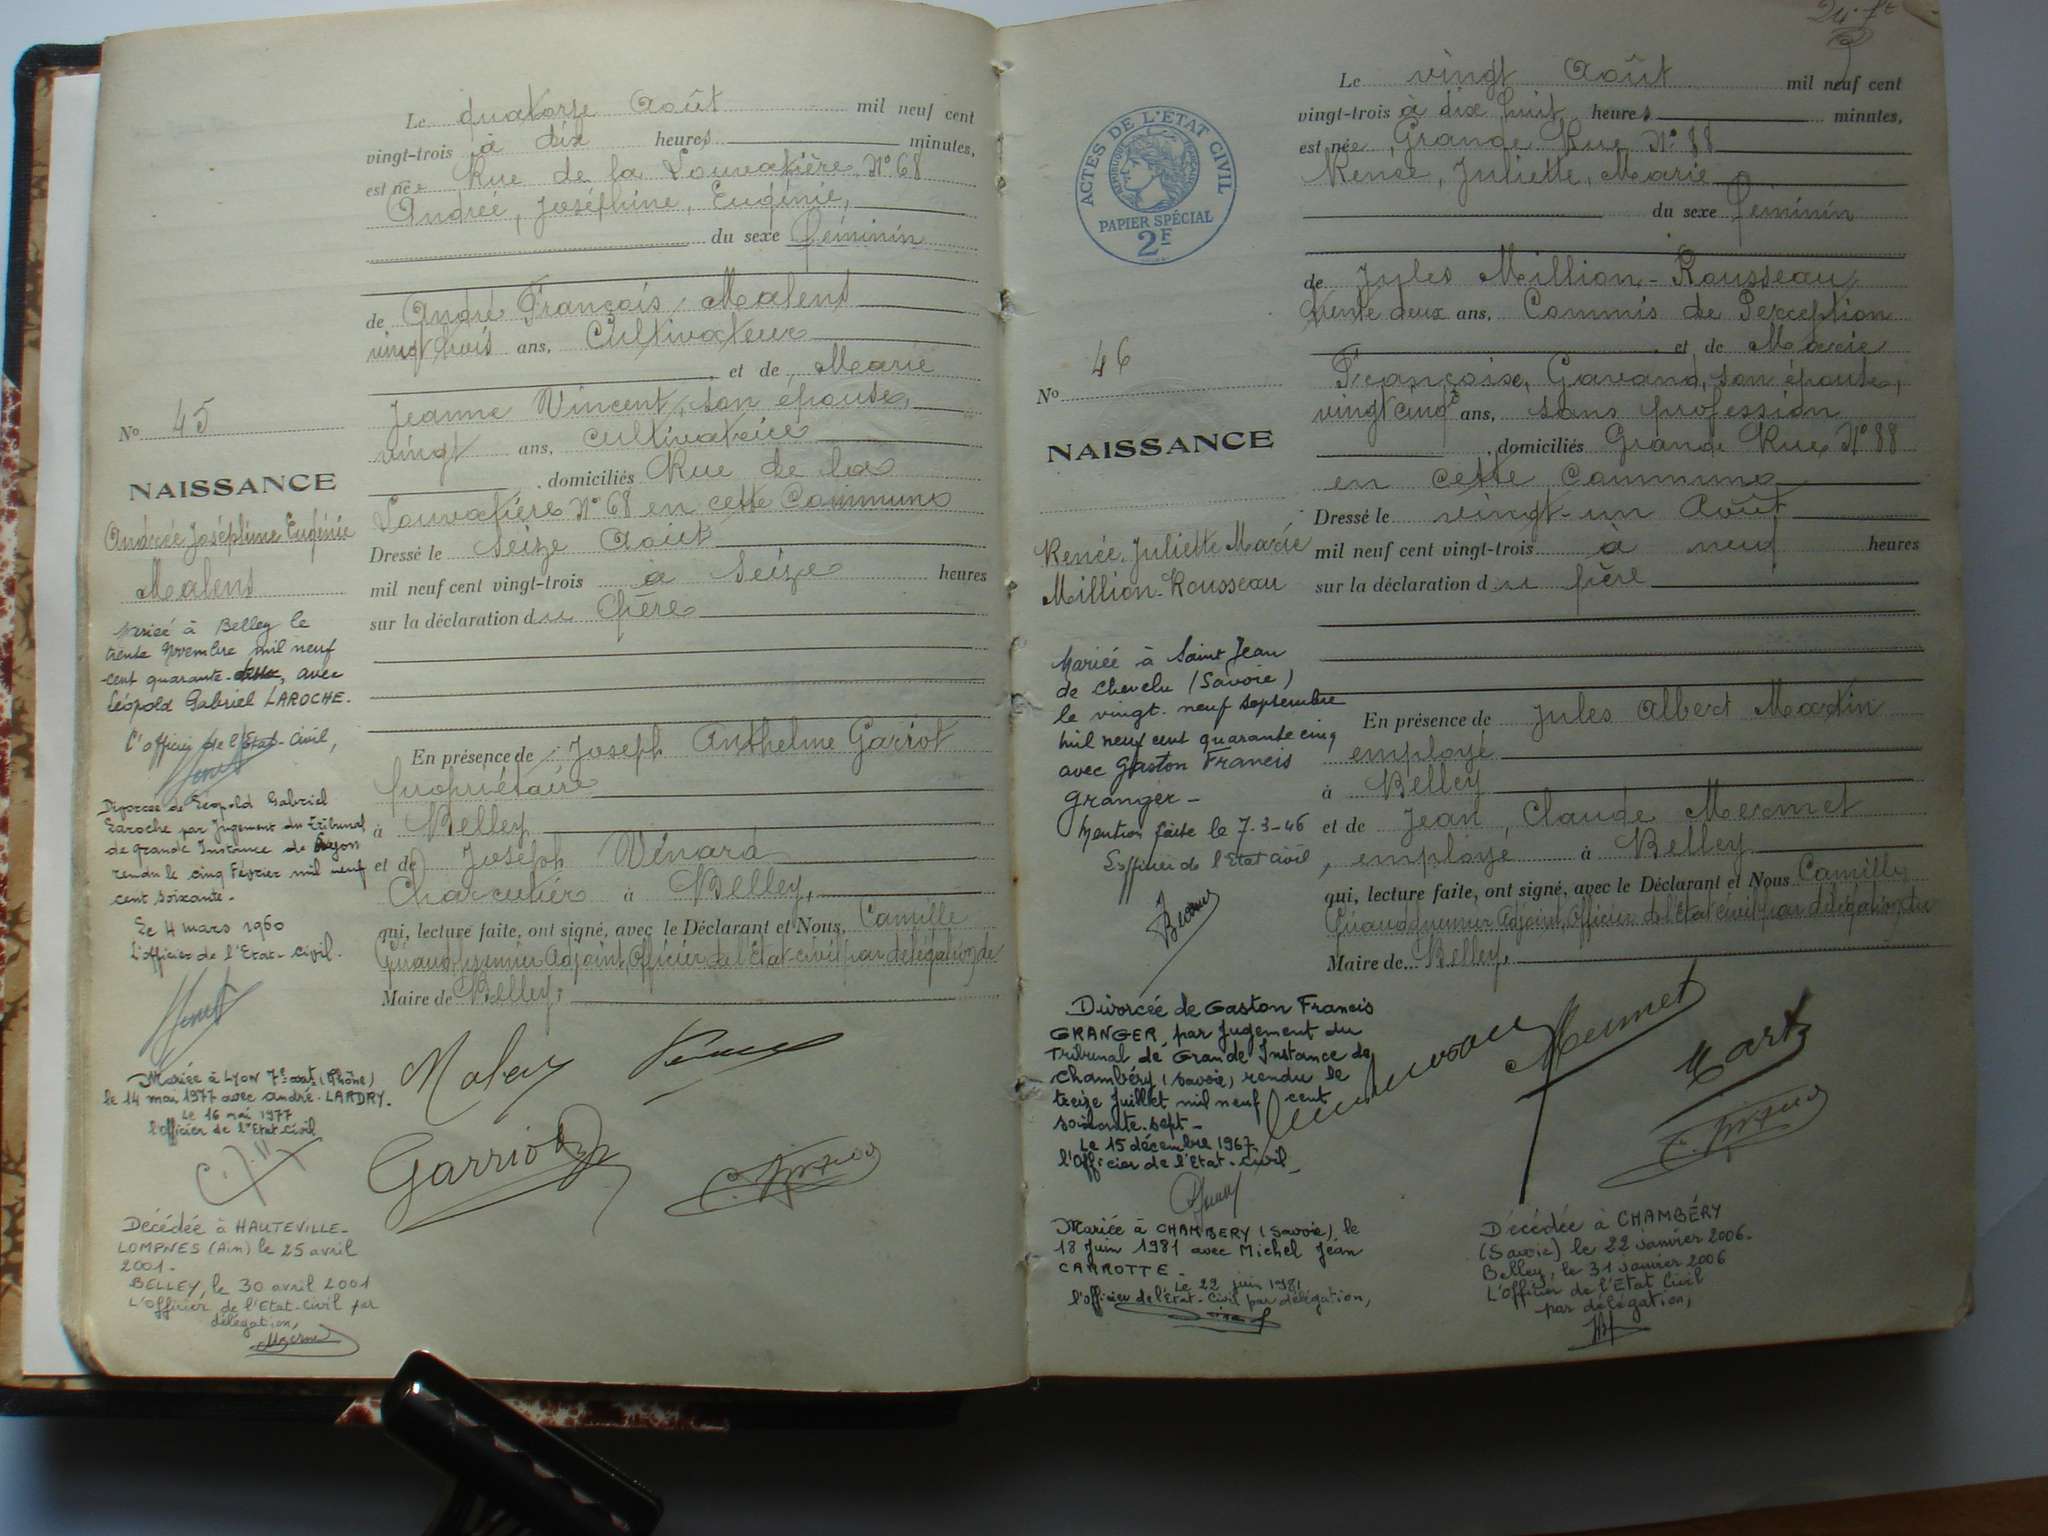 Le quatorze Août mil neuf cent
vingt-trois à dix heures minutes,
est née Rue de la Louvatière N° 68
Andrée, Joséphine, Eugénie,
du sexe féminin
de André François Malent
vingt trois ans, Cultivateur
et de Marie
Jeanne Vincent, son épouse,
vingt ans, cultivatrice
domiciliés Rue de la
Louvatière N° 68 en cette Commune
Dressé le seize Août
mil neuf cent vingt-trois à seize heures
sur la déclaration du Père
En présence de Joseph Anthelme Garriot
propriétaire
à Belley
et de Joseph Vénard
Charcutier à Belley,
qui, lecture faite, ont signé, avec le Déclarant et Nous, Camille
premier Adjoint, Officier de l'Etat-civil par délégation du
Maire de Belley,
Garriot
N° 45
NAISSANCE
Andrée Joséphine Eugénie
Malent
Mariée à Belley le
trente Novembre mil neuf
cent quarante- , avec
Léopold Gabriel LAROCHE.
L'officier de l'Etat-Civil,
Divorcée de Léopold Gabriel
Laroche par Jugement du Tribunal
de Grande Instance de
rendu le cinq Février mil neuf
cent soixante.
Le 4 mars 1960
L'officier de l'Etat-Civil.
Mariée à LYON 7e arrt (Rhône)
le 14 mai 1977 avec André LARDRY.
Le 16 mai 1977
l'officier de l'Etat-civil
Décédée à HAUTEVILLE-
LOMPNES (Ain) le 25 avril
2001.
BELLEY, le 30 avril 2001
L'officier de l'Etat-Civil par
délégation,
Le vingt Août mil neuf cent
vingt-trois à dix huit heures minutes,
est née Grande Rue N° 88
Renée, Juliette, Marie
du sexe féminin
de Jules Million-Rousseau
trente deux ans, Commis de Perception
et de Marie
Françoise, Gavand, son épouse,
vingt cinq ans, sans profession
domiciliés Grande Rue N° 88
en cette Commune
Dressé le vingt-un Août
mil neuf cent vingt-trois à neuf heures
sur la déclaration du père
En présence de Jules Albert Martin
employé
à Belley
et de Jean, Claude Mermet
, employé à Belley
qui, lecture faite, ont signé, avec le Déclarant et Nous Camille
premier Adjoint, Officier de l'Etat civil par délégation du
Maire de Belley,
Mermet
ACTES DE L'ETAT CIVIL
REPUBLIQUE FRANÇAISE
PAPIER SPÉCIAL
2F
N° 46
NAISSANCE
Renée Juliette Marie
Million-Rousseau
Mariée à Saint Jean
de Chevelu (Savoie)
le vingt-neuf septembre
mil neuf cent quarante cinq
avec Gaston Francis
Granger -
Mention faite le 7-3-46
L'officier de l'Etat civil
Divorcée de Gaston Francis
GRANGER, par Jugement du
Tribunal de Grande Instance de
Chambéry (Savoie) rendu le
treize Juillet mil neuf cent
soixante-sept -
Le 15 décembre 1967
l'Officier de l'Etat-civil
Mariée à CHAMBERY (Savoie), le
18 Juin 1981 avec Michel Jean
CARROTTE -
Le 22 juin 1981
l'officier de l'Etat-Civil par délégation,
Décédée à CHAMBÉRY
(Savoie) le 22 Janvier 2006.
Belley, le 31 Janvier 2006
L'Officier de l'Etat Civil
par délégation,